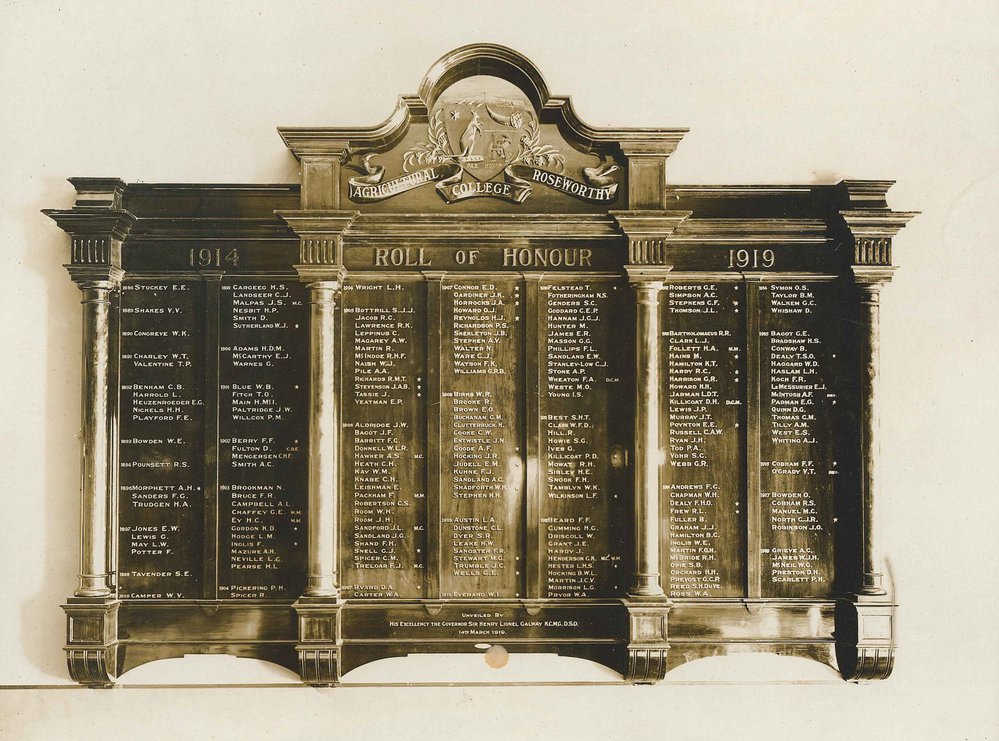 AGRICULTURAL COLLEGE ROSEWORTHY
1914 ROLL OF HONOUR 1919
STUCKEY E.E.
1889 SHAKES V.V.
1890 CONGREVE W.K.
CHARLEY W.T.
VALENTINE T.P.
1892 BENHAM C.B.
HARROLD L.
HEUZENROEDER E.G.
NICKELS H.H.
PLAYFORD F.E.
1893 BOWDEN W.E.
1894 POUNSETT R.S.
1896 MORPHETT A.H. *
SANDERS F.G.
TRUDGEN H.A.
1897 JONES E.W.
LEWIS G.
MAY L.W.
POTTER F.
1898 TAVENDER S.E.
1899 CAMPER W.V.
CARGEEG H.S.
LANDSEER C.J.
MALPAS J.S. M.C.
NESBIT H.P.
SMITH D.
SUTHERLAND W.J. *
1900 ADAMS H.D.M.
MCCARTHY E.J.
WARNES G.
1901 BLUE W.B. *
FITCH T.O.
MAIN H.MCI.
PALTRIDGE J.W.
WILLCOX P.M.
1902 BERRY F.F. *
FULTON D. C.B.E.
MENGERSEN C.H.F.
SMITH A.C.
1903 BROOKMAN N.
BRUCE F.R.
CAMPBELL A.L.
CHAFFEY G.E. M.M.
EY H.C. M.M.
GORDON K.D. *
HODGE L.M.
INGLIS F. *
MAZURE A.H.
NEVILLE L.C.
PEARSE H.L.
1904 PICKERING P.H.
SPICER R.
WRIGHT L.H.
1905 BOTTRILL S.J.J.
JACOB R.C.
LAWRENCE R.K.
LEPPINUS C.
MAGAREY A.W.
MARTIN R.
MCINDOE R.H.F.
NAISH W.J.
PILE A.A.
RICHARDS R.M.T. *
STEVENSON J.A.B. *
TASSIE J. *
YEATMAN E.P.
1906 ALDRIDGE J.W.
BAGOT J.F.
BARRITT F.C.
DONNELL W.L.R.
HAWKER A.S. M.C.
HEATH C.H.
KAY W.M.
KNABE C.H.
LEISHMAN E.
PACKHAM F. M.M.
ROBERTSON C.S.
ROOM W.H.
ROOM J.H.
SANDFORD J.L. M.C.
SANDLAND J.G.
SHAND F.H.
SNELL C.J. *
SPICER C.M. *
TRELOAR F.J. M.C.
1907 BYARD D.A. *
CARTER W.A.
1907 CONNOR E.D.
GARDINER J.K. *
HORROCKS J.A. *
HOWARD O.J.
REYNOLDS H.J. *
RICHARDSON P.S.
SHEKLETON J.B.
STEPHEN A.V.
WALTER N.
WARE C.J.
WATSON F.K.
WILLIAMS G.R.B.
1908 BIRKS W.R.
BROOKE R.
BROWN E.O.
BUCHANAN G.M.
CLUTTERBUCK H.
COOKE C.W.
ENTWISTLE J.N.
GOODE A.F. *
HOCKING J.R.
JUDELL E.M.
KUHNE F.J.
SANDLAND A.C.
SHADFORTH W.H. *
STEPHEN H.H.
1909 AUSTIN L.A.
DUNSTONE C.L.
DYER S.R.
LEAKE H.W.
SANGSTER F.R.
STEWART M.C. *
TRUMBLE J.C.
WELLS G.E.
1910 EVERARD W.I. *
1910 FELSTEAD T. *
FOTHERINGHAM N.S.
GENDERS S.C.
GODDARD C.E.P.
HANNAM J.C.J.
HUNTER M.
JAMES E.R.
MASSON G.G.
PHILLIPS F.L.
SANDLAND E.W.
STANLEY-LOW C.J.
STONE A.P.
WHEATON F.A. D.C.M.
WESTE M.O.
YOUNG I.S.
1911 BEST S.H.T.
CLARK W.F.D.
HILL R.
HOWIE S.G.
IVES G.
KILLICOAT P.D.
MOWAT R.H.
SIBLEY H.E.
SNOOK F.H.
TAMBLYN W.K.
WILKINSON L.F. *
1912 BEARD F.F.
CUMMING H.G.
DRISCOLL W.
GRANT J.E.
HARDY J.
HENDERSON G.K. M.C. M.M.
HESTER L.H.S. *
HOCKING B.W.L.
MARTIN J.C.V.
MORRISON L.G.
PRYOR W.A.
ROBERTS G.E. *
SIMPSON A.C.
STEPHENS C.F. *
THOMSON J.L. *
BARTHOLOMAEUS R.R.
CLARK L.J.
FOLLETT H.A. M.M.
HAINS M. *
HAMILTON K.T.
HARDY R.C. *
HARRISON G.R. *
HOWARD H.H.
JARMAN L.D.T.
KILLICOAT D.H. D.C.M.
LEWIS J.P.
MURRAY J.T.
POYNTON E.E. *
RUSSELL C.A.W.
RYAN J.H.
TOD P.A.
VOHR S.C.
WEBB G.R.
1914 ANDREWS F.C.
CHAPMAN W.H.
DEALY F.H.O.
FREW R.L.
FULLER B.
GRAHAM J.J.
HAMILTON B.C.
INGLIS W.E.
MARTIN F.O.H.
MCBRIDE R.H.
OPIE S.B.
ORCHARD H.H.
PREVOST G.C.P.
REED S.H.DLYE.
ROSS W.A.
1914 SYMON O.S.
TAYLOR B.M.
WALKEM G.C.
WHISHAW D.
1915 BAGOT G.E.
BRADSHAW H.S.
CONWAY B.
DEALY T.S.O. *
HAGGARD W.D.
HASLAM L.H.
KOCH F.R.
LEMESSURIER E.J.
MCINTOSH A.F. *
PADMAN E.G. *
QUINN D.G.
THOMAS C.M.
TILLY A.M.
WEST E.S.
WHITING A.J.
1916 COBHAM F.F. *
O'GRADY V.T. *
1917 BOWDEN O.
COBHAM R.S.
MANUEL M.C.
NORTH C.J.R. *
ROBINSON J.O.
1918 GRIEVE A.C.
JAMES W.J.H.
MCNEIL W.G.
PRESTON D.H.
SCARLETT P.H.
UNVEILED BY
HIS EXCELLENCY THE GOVERNOR SIR HENRY LIONEL GALWAY K.C.M.G. D.S.O.
14TH MARCH 1919.